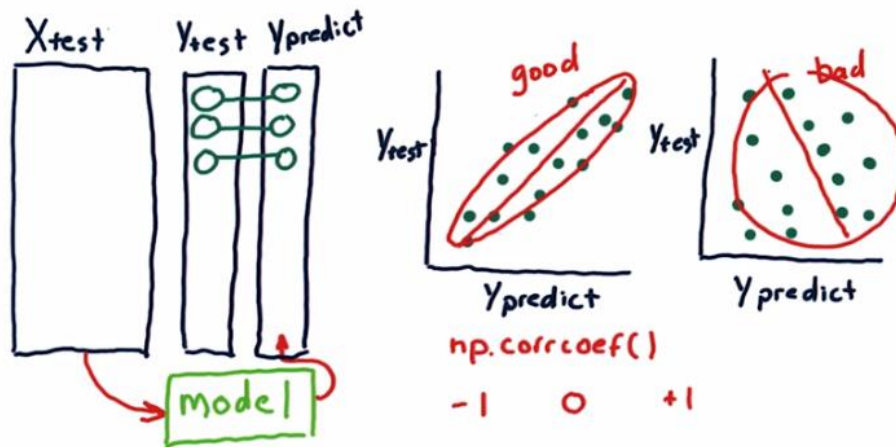 Xtest
Ytest
Ypredict
model
good
Ytest
Ypredict
bad
Ytest
Ypredict
np.corrcoef()
-1 0 +1